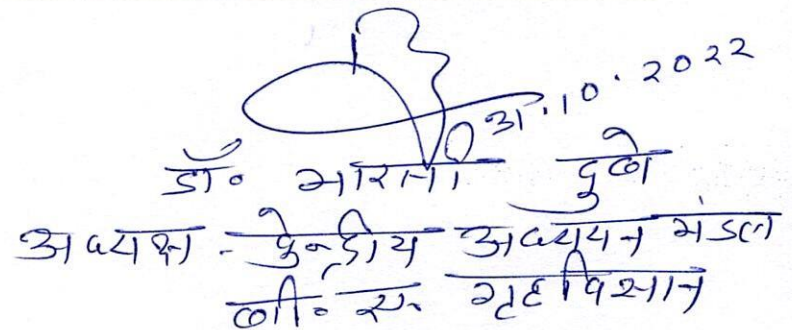 31.10.2022
डॉ० भारती दुबे
अध्यक्ष - केन्द्रीय अध्ययन मंडल
बी. ए. गृहविज्ञान